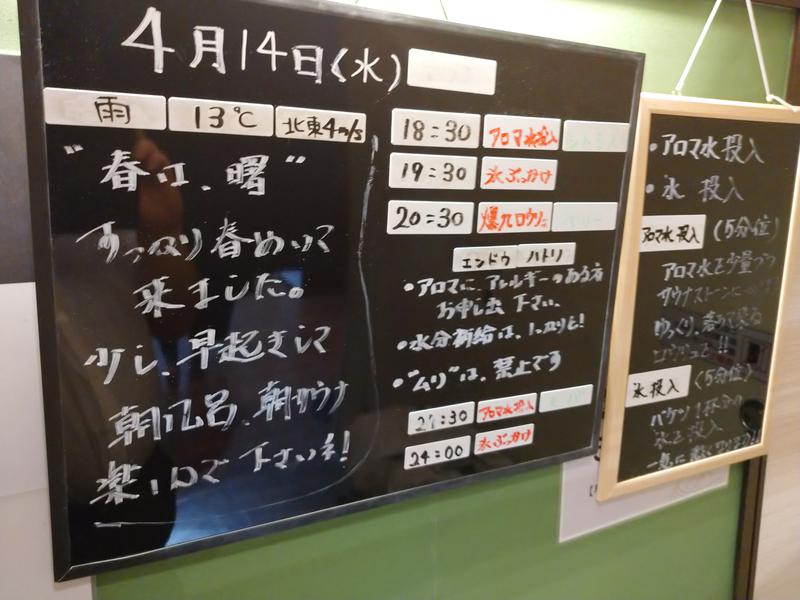 4月14日(水)
雨 13℃ 北東4m/s
"春は、曙"
すっかり春めいて
来ました。
少し、早起きして
朝風呂、朝サウナ
楽しんで下さいネ!
18:30 アロマ水投入
19:30 氷ぶっかけ
20:30 爆風ロウリュ
エンドウ ハトリ
・アロマに、アレルギーのある方
お申し出下さい。
・水分補給は、しっかりと!
・"ムリ"は、禁止です
21:30 アロマ水投入
24:00 氷ぶっかけ
・アロマ水投入
・氷 投入
アロマ水投入 (5分位)
アロマ水を少量づつ
サウナストーンに
ゆっくり、
氷投入 (5分位)
バケツ1杯分の
氷を投入
一気に